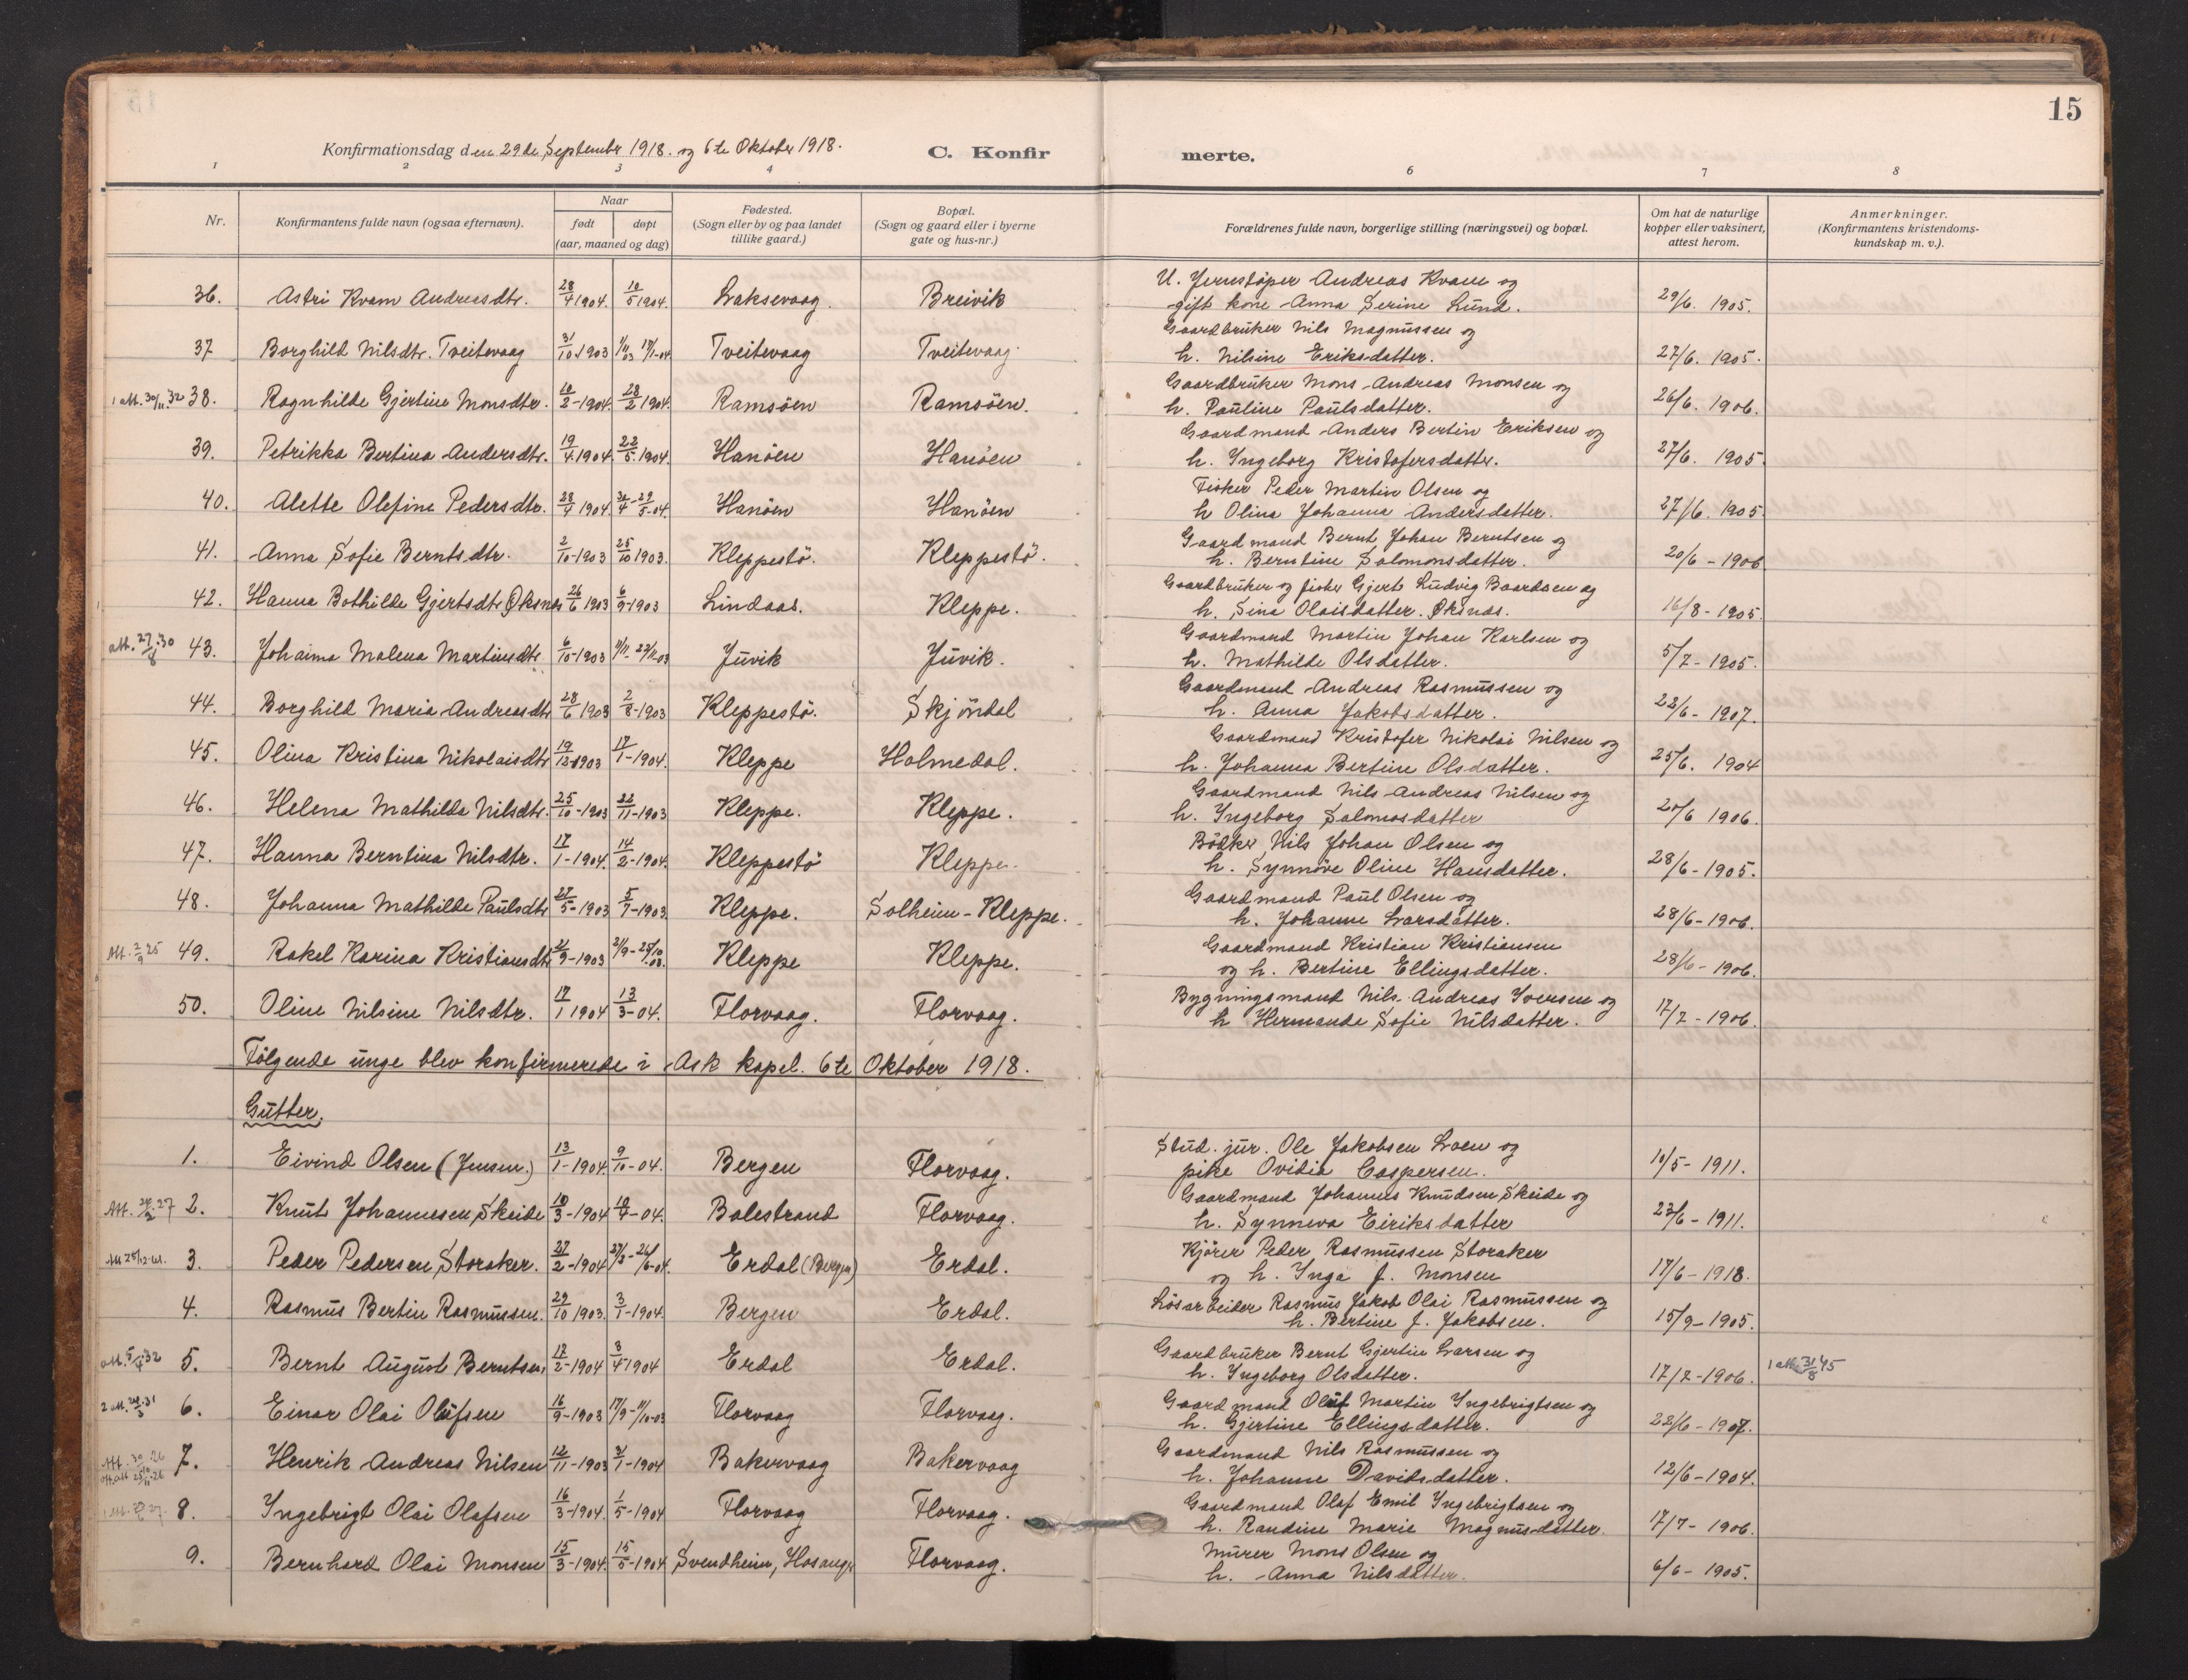 15
Konfirmationsdag den 29de September 1918. og 6te Oktober 1918.
C. Konfirmerte.
1 2 3 4 6 7 8
Nr.
Konfirmantens fulde navn (ogsaa efternavn).
Naar
født døpt
(aar, maaned og dag)
Fødested.
(Sogn eller by og paa landet
tillike gaard.)
Bopæl.
(Sogn og gaard eller i byerne
gate og hus-nr.)
Forældrenes fulde navn, borgerlige stilling (næringsvei) og bopæl.
Om hat de naturlige
kopper eller vaksinert,
attest herom.
Anmerkninger.
(Konfirmantens kristendoms-
kundskap m. v.).
36. Astri Kvam Andreasdtr. 28/4 1904. 10/5 1904. Laksevaag Breivik U. Jernstøper Andreas Kvam og
gift kone Anna Serine Lund. 29/6. 1905.
37 Borghild Nilsdtr. Tveitevaag 31/10 1903 1/11 03 17/1-04 Tveitevaag Tveitevaag. Gaardbruker Nils Magnussen og
h. Nilsine Eriksdatter. 27/6. 1905.
1 att. 30/11.32 38. Ragnhilde Gjertine Monsdtr. 10/2-1904. 28/2 1904. Ramsöen Ramsöen. Gaardbruker Mons Andreas Monsen og
h. Pauline Paulsdatter. 26/6. 1906.
39. Petrikka Bertina Andersdtr. 19/4 1904. 22/5. 1904. Hanöen Hanöen Gaardmand Anders Bertin Eriksen og
h. Ingeborg Kristofersdatter. 27/6. 1905.
40. Alette Olefine Pedersdtr. 28/4 1904. 30/4-29/5-04. Hanöen Hanöen Fisker Peder Martin Olsen og
h Olina Johanna Andersdatter. 27/6. 1905.
41. Anna Sofie Berntsdtr. 2/10-1903 25/10 1903. Kleppestö. Kleppestö. Gaardmand Bernt Johan Berntsen og
h. Berntine Salomonsdatter. 20/6 - 1906
42. Hanna Bothilde Gjertsdtr Øksnes 26/6 1903 6/9-1903 Lindaas. Kleppe. Gaardbruker og fisker Gjert Ludvig Baardsen og
h. Sina Olaisdatter. Øksnæs. 16/8 - 1905.
att. 27/8.30 43. Johanna Malena Martinsdtr 6/10-1903 1/11-22/11-03 Juvik Juvik. Gaardmand Martin Johan Karlsen og
h. Mathilde Olsdatter. 5/7 - 1905.
44. Borghild Maria Andreasdtr 28/6 1903 2/8-1903 Kleppestö. Skjöndal Gaardmand Andreas Rasmussen og
h. Anna Jakobsdatter. 22/6 - 1907.
45. Olina Kristina Nikolaisdtr 19/12 1903 17/1-1904. Kleppe Holmedal. Gaardmand Kristofer Nikolai Nilsen og
h. Johanna Bertine Olsdatter. 25/6. 1904
46. Helena Mathilda Nilsdtr. 25/10-1903 22/11-1903 Kleppe. Kleppe. Gaardmand Nils Andreas Nilsen og
h. Ingeborg Salomosdatter 20/6 1906.
47. Hanna Berntina Nilsdtr. 17/1-1904. 14/2-1904. Kleppestö Kleppe. Bödker Nils Johan Olsen og
h. Synnöve Oline Hansdatter. 28/6 - 1905.
48. Johanna Mathilde Paulsdtr 27/5-1903 5/7-1903 Kleppe. Solheim - Kleppe. Gaardmand Paul Olsen og
h. Johanne Larsdatter. 28/6 - 1906.
Att. 2/9 25 49. Rakel Karina Kristiansdtr 2/9-1903 21/9-25/10.03. Kleppe Kleppe. Gaardmand Kristian Kristiansen
og h. Bertine Ellingsdatter. 28/6 - 1906.
50. Oline Nilsine Nilsdtr. 17/1 1904 13/3-04. Florvaag. Florvaag. Bygningsmand Nils Andreas Iversen og
h Hermanda Sofie Nilsdatter. 17/7 - 1906.
Følgende unge blev konfirmerede i Ask kapel. 6te Oktober 1918.
Gutter.
1. Eivind Olsen (Jensen.) 13/1-1904. 9/10-04. Bergen Florvaag. Stud. jur. Ole Jakobsen Loen og
pike Ovidia Caspersen. 10/5 - 1911.
Att. 28/2.27 2. Knut Johannesen Skeide 10/3-1904 10/4-04. Balestrand Florvaag. Gaardmand Johannes Knudsen Skeide og
h. Synneva Eiriksdatter 23/6 - 1911.
3. Peder Pedersen Storaker. 27/2-1904 27/3-26/6-04. Erdal (Bergen) Erdal. Kjører Peder Rasmussen Storaker
og h. Inga f. Monsen 17/6 - 1918.
4. Rasmus Bertin Rasmussen. 29/10 1903. 3/1-1904. Bergen Erdal. Løsarbeider Rasmus Jakob Olai Rasmussen og
h. Bertine f. Jakobsen. 15/9 - 1905.
att. 5/4.32 5. Bernt August Berntsen 12/2-1904 3/4-1904 Erdal Erdal. Gaardbruker Bernt Gjertin Larsen og
h. Ingeborg Olsdatter. 17/7 - 1906. 1 att. 31/8 45
2 att. 24/3.31 6. Einar Olai Olufsen 16/9-1903 17/9-11/10-03 Florvaag Florvaag. Gaardmand Oluf Martin Ingebrigtsen og
h. Gjertine Ellingsdatter. 22/6 - 1907.
Att. 30/10.26 7. Henrik Andreas Nilsen 12/11-1903 31/1-1904 Bakervaag Bakervaag Gaardmand Nils Rasmussen og
h. Johanne Davidsdatter. 12/6 - 1904.
8. Ingebrigt Olai Olafsen 16/3-1904. 1/5-1904 Florvaag Florvaag. Gaardmand Olaf Emil Ingebrigtsen og
h. Randine Marie Magnusdatter. 17/7 - 1906.
9. Bernhard Olai Monsen 15/3-1904. 15/5-1904 Svendheim, Hosanger Florvaag. Murer Mons Olsen og
h. Anna Nilsdatter. 6/6 - 1905.